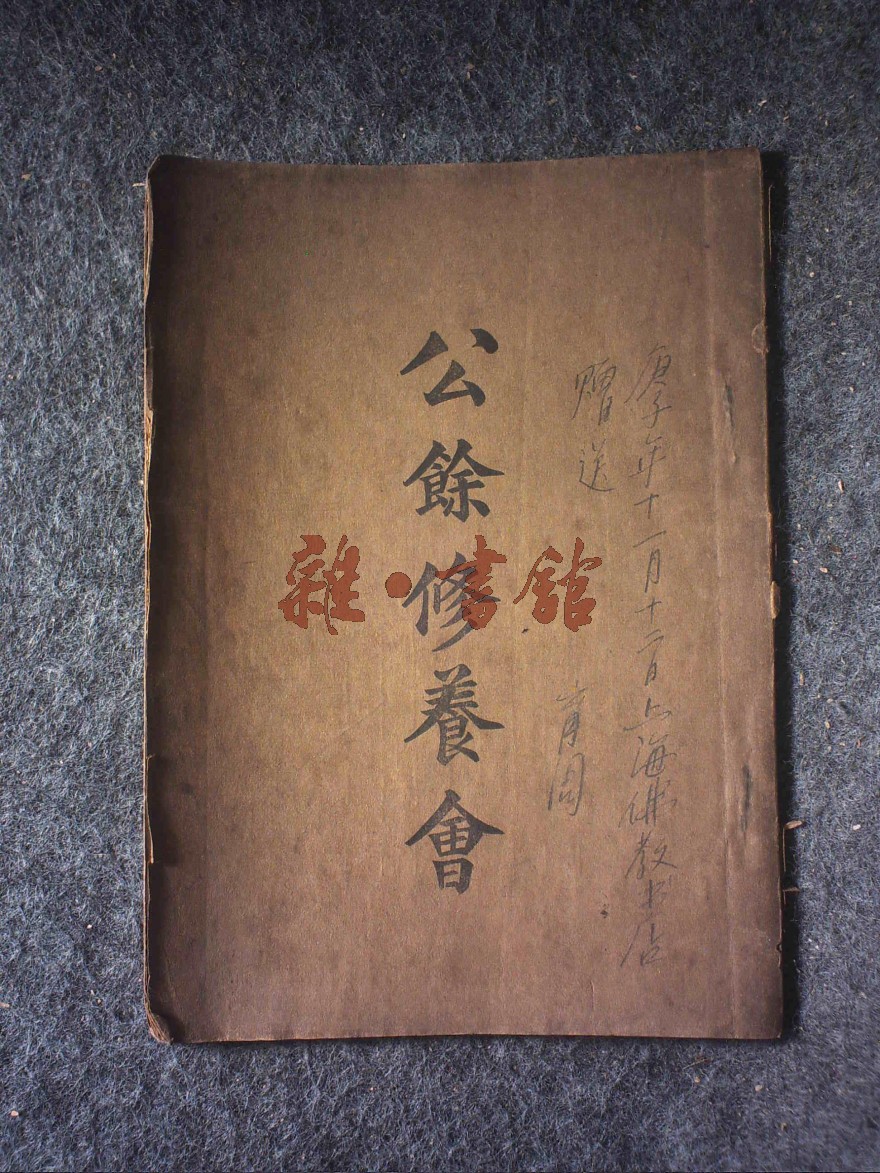 庚子年十一月十二日上海佛教书店
贈送
育周
公餘修養會
雜·書館